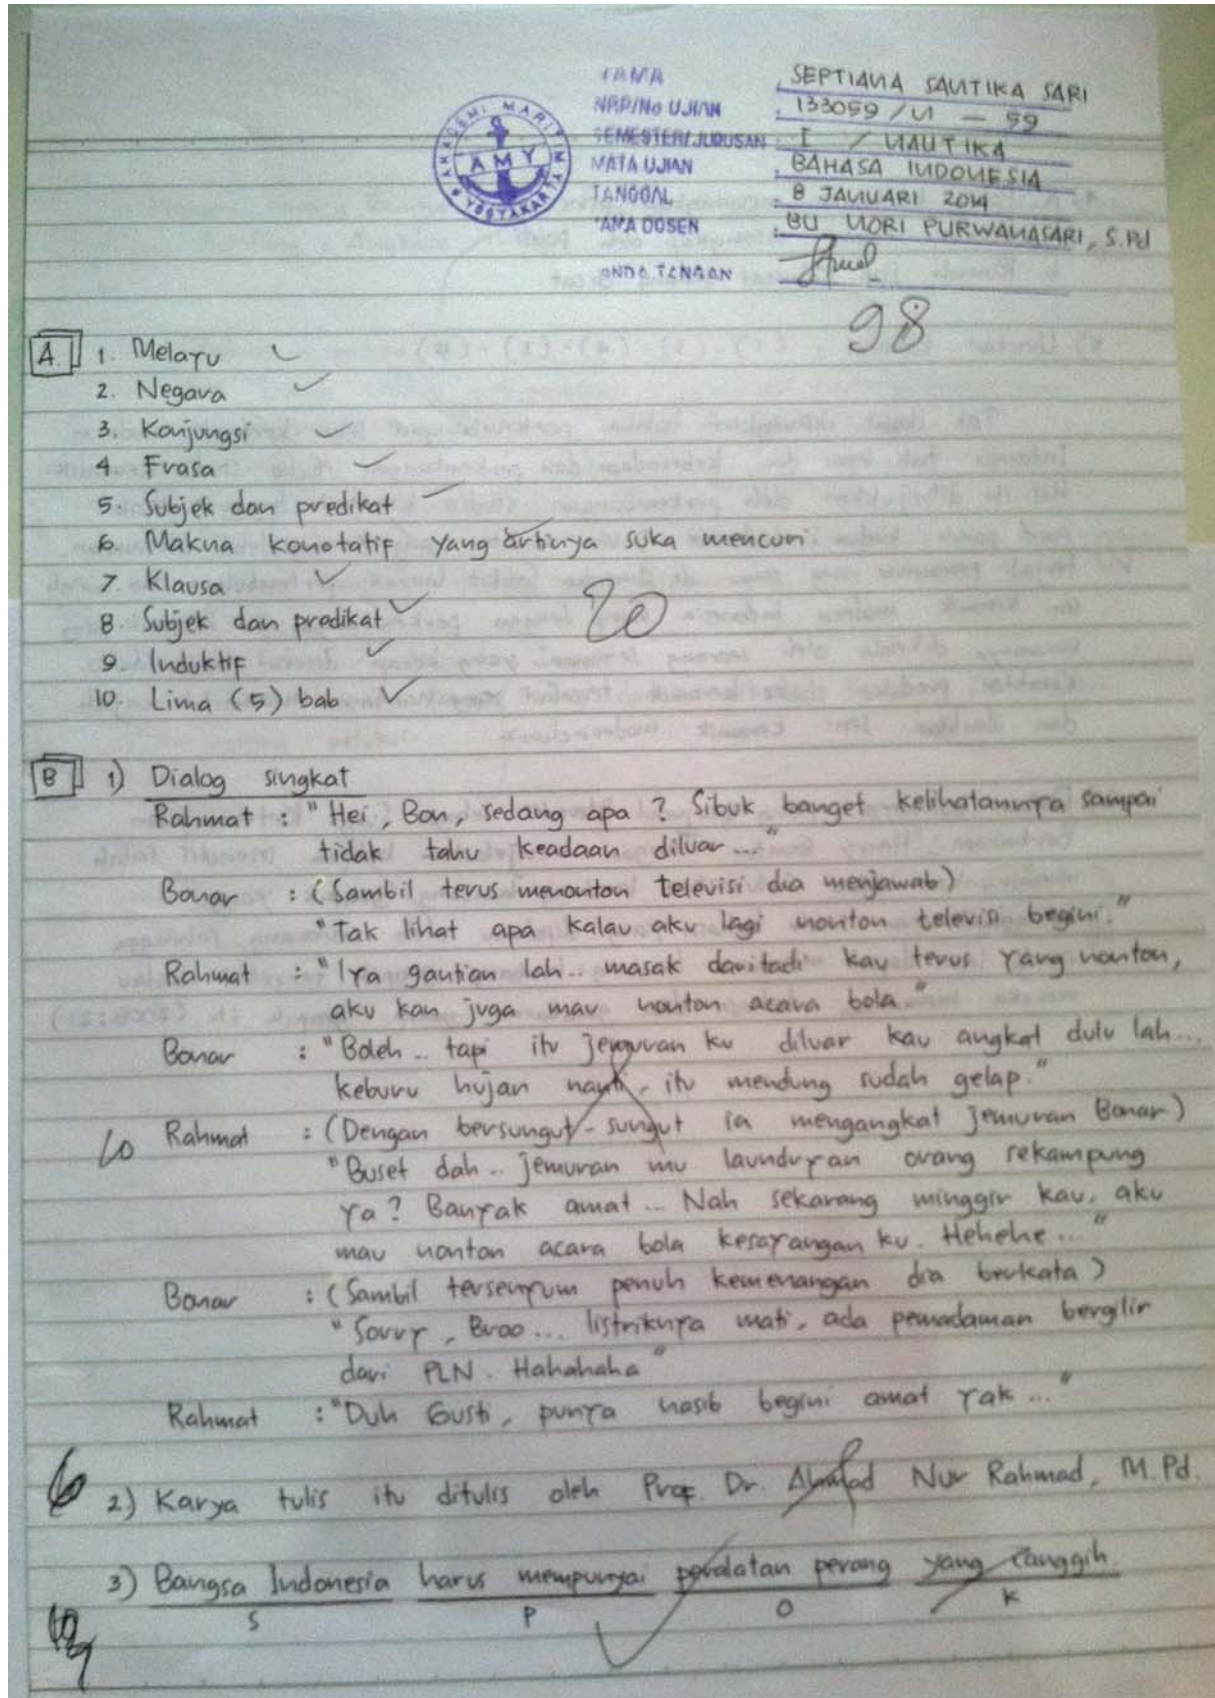 AKADEMI MARITIM
AMY
YOGYAKARTA
NAMA : SEPTIANA SANTIKA SARI
NRP/No UJIAN : 133059 / N - 59
SEMESTER/JURUSAN : I / NAUTIKA
MATA UJIAN : BAHASA INDONESIA
TANGGAL : 8 JANUARI 2014
NAMA DOSEN : BU NORI PURWANASARI, S.Pd
TANDA TANGAN
98
A. 1. Melayu
2. Negara
3. Konjungsi
4. Frasa
5. Subjek dan predikat
6. Makna konotatif yang artinya suka mencuri
7. Klausa
8. Subjek dan predikat
20
9. Induktif
10. Lima (5) bab
B 1) Dialog singkat
Rahmat : "Hei, Bon, sedang apa? Sibuk banget kelihatannya sampai
tidak tahu keadaan diluar..."
Bonar : (Sambil terus menonton televisi dia menjawab)
"Tak lihat apa kalau aku lagi nonton televisi begini."
Rahmat : "Iya gantian lah.. masak daritadi kau terus yang nonton,
aku kan juga mau nonton acara bola."
Bonar : "Boleh.. tapi itu jemuran ku diluar kau angkat dulu lah...
keburu hujan nanti, itu mendung sudah gelap."
10 Rahmat : (Dengan bersungut-sungut ia mengangkat jemuran Bonar)
"Buset dah.. jemuran mu laundryan orang sekampung
ya? Banyak amat... Nah sekarang minggir kau, aku
mau nonton acara bola kesayangan ku. Hehehe..."
Bonar : (Sambil tersenyum penuh kemenangan dia berkata)
"Sorry, Broo... listriknya mati, ada pemadaman bergilir
dari PLN. Hahahaha"
Rahmat : "Duh Gusti, punya nasib begini amat yak..."
2) Karya tulis itu ditulis oleh Prof. Dr. Ahmad Nur Rahmad, M.Pd.
3) Bangsa Indonesia harus mempunyai peralatan perang yang canggih
S P O K